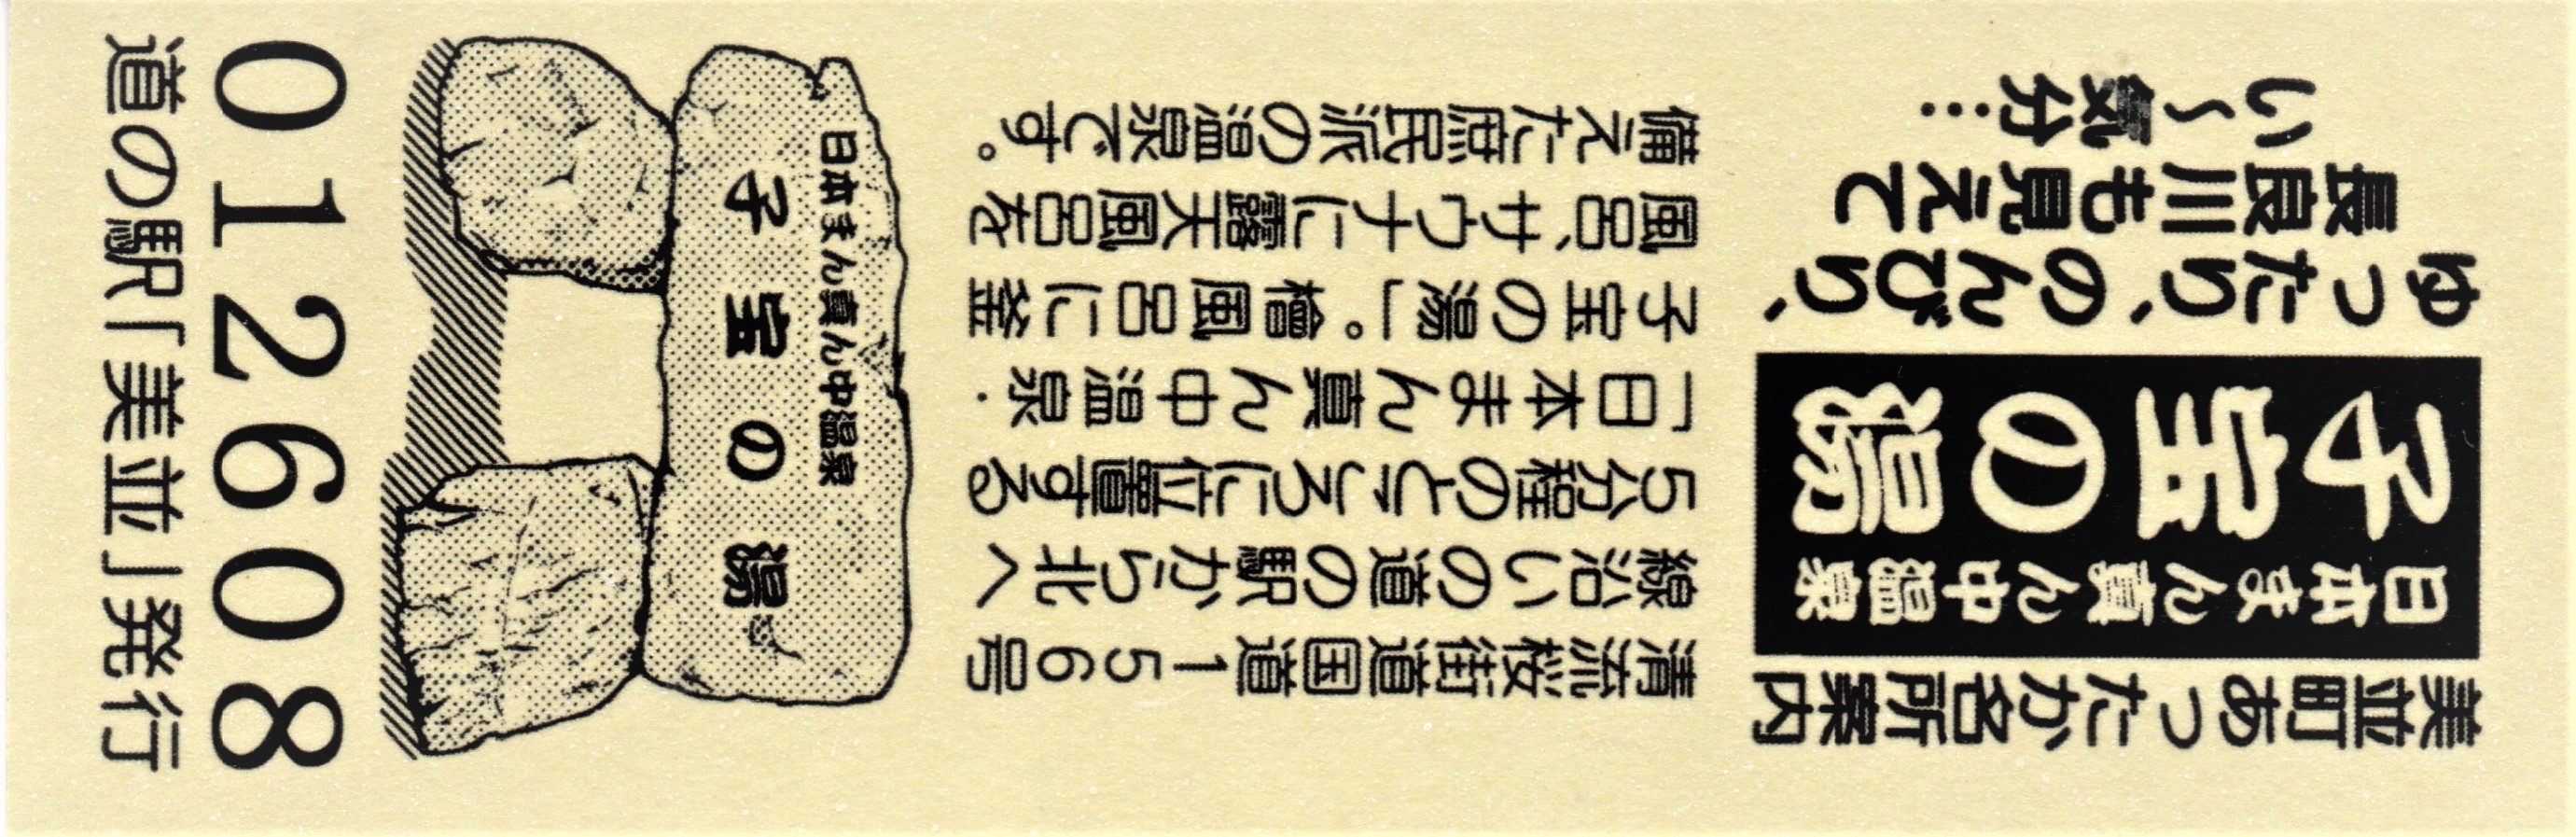 美並町あったか名所案内
日本まん真ん中温泉
子宝の湯
ゆったり、のんびり、
長良川も見えて
い〜気分…
清流桜街道国道156号
線沿いの道の駅から北へ
5分程のところに位置する
「日本まん真ん中温泉・
子宝の湯」。檜風呂に釜
風呂、サウナに露天風呂を
備えた庶民派の温泉です。
日本まん真ん中温泉
子宝の湯
012608
道の駅「美並」発行